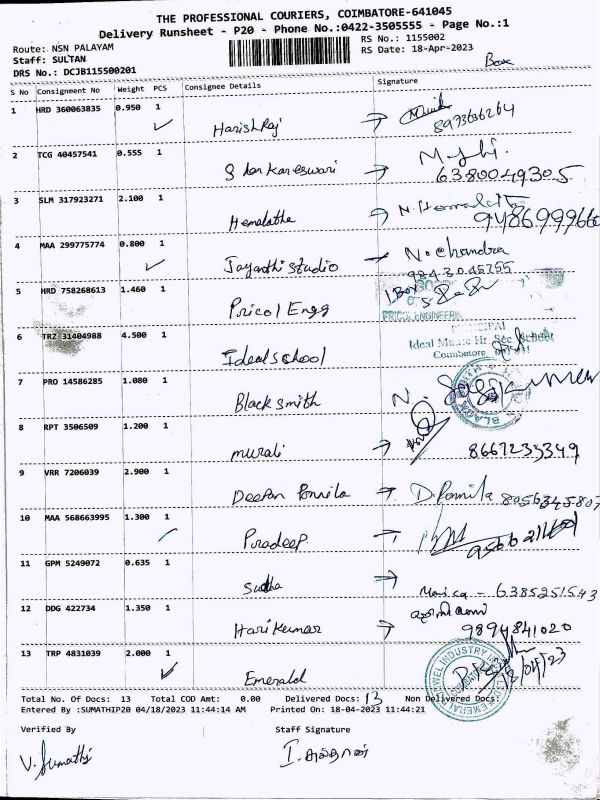 THE PROFESSIONAL COURIERS, COIMBATORE-641045
Delivery Runsheet - P20 - Phone No.:0422-3505555 - Page No.:1
Route: NSN PALAYAM
RS No.: 1155002
Staff: SULTAN
RS Date: 18-Apr-2023
DRS No.: DCJB115500201
Box
S No Consignment No Weight PCS Consignee Details Signature
1 HRD 360063835 0.950 1
HarishRaj 8973636264
2 TCG 40457541 0.555 1
6380049305
3 SLM 317923271 2.100 1
Hemalatha N. Hemalatha 9486999666
4 MAA 299775774 0.800 1
Jayanthi Studio N. Chandra
5 HRD 758268613 1.460 1
1 Box
Pricol Engg
PRICOL ENGINEERING
6 TRZ 31404988 4.500 1
PRINCIPAL
Ideal Matric Hr. Sec. School
Coimbatore
Ideal School
7 PRO 14586285 1.080 1
Black Smith N.
8 RPT 3506509 1.200 1
murali 8667235349
9 VRR 7206039 2.900 1
Deepan Pornila D. Pornila 8056345807
10 MAA 568663995 1.300 1
Pradeep
11 GPM 5249072 0.635 1
Sudha Monica - 6385251543
12 DDG 422734 1.350 1
Hari kumar 9894841020
13 TRP 4831039 2.000 1
Emerald 18/04/23
Total No. Of Docs: 13 Total COD Amt: 0.00 Delivered Docs: 13 Non Delivered Docs:
Entered By :SUMATHIP20 04/18/2023 11:44:14 AM Printed On: 18-04-2023 11:44:21
Verified By Staff Signature
V. Sumathi